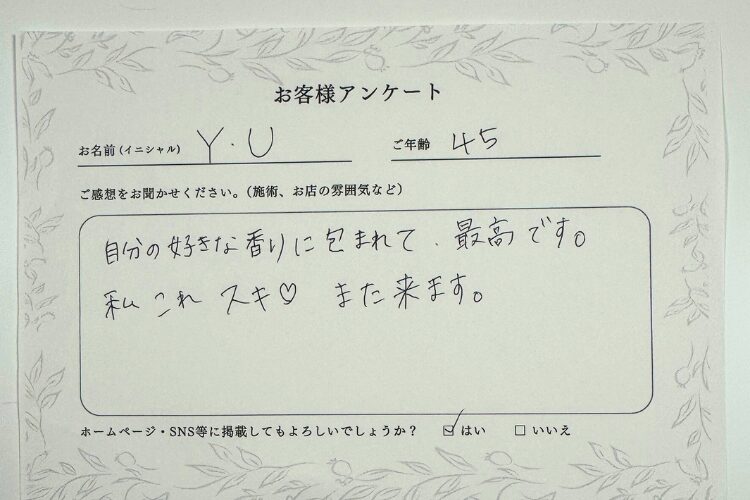 お客様アンケート
お名前(イニシャル) Y.U ご年齢 45
ご感想をお聞かせください。(施術、お店の雰囲気など)
自分の好きな香りに包まれて、最高です。
私これ スキ♡ また来ます。
ホームページ・SNS等に掲載してもよろしいでしょうか? ☑はい □いいえ